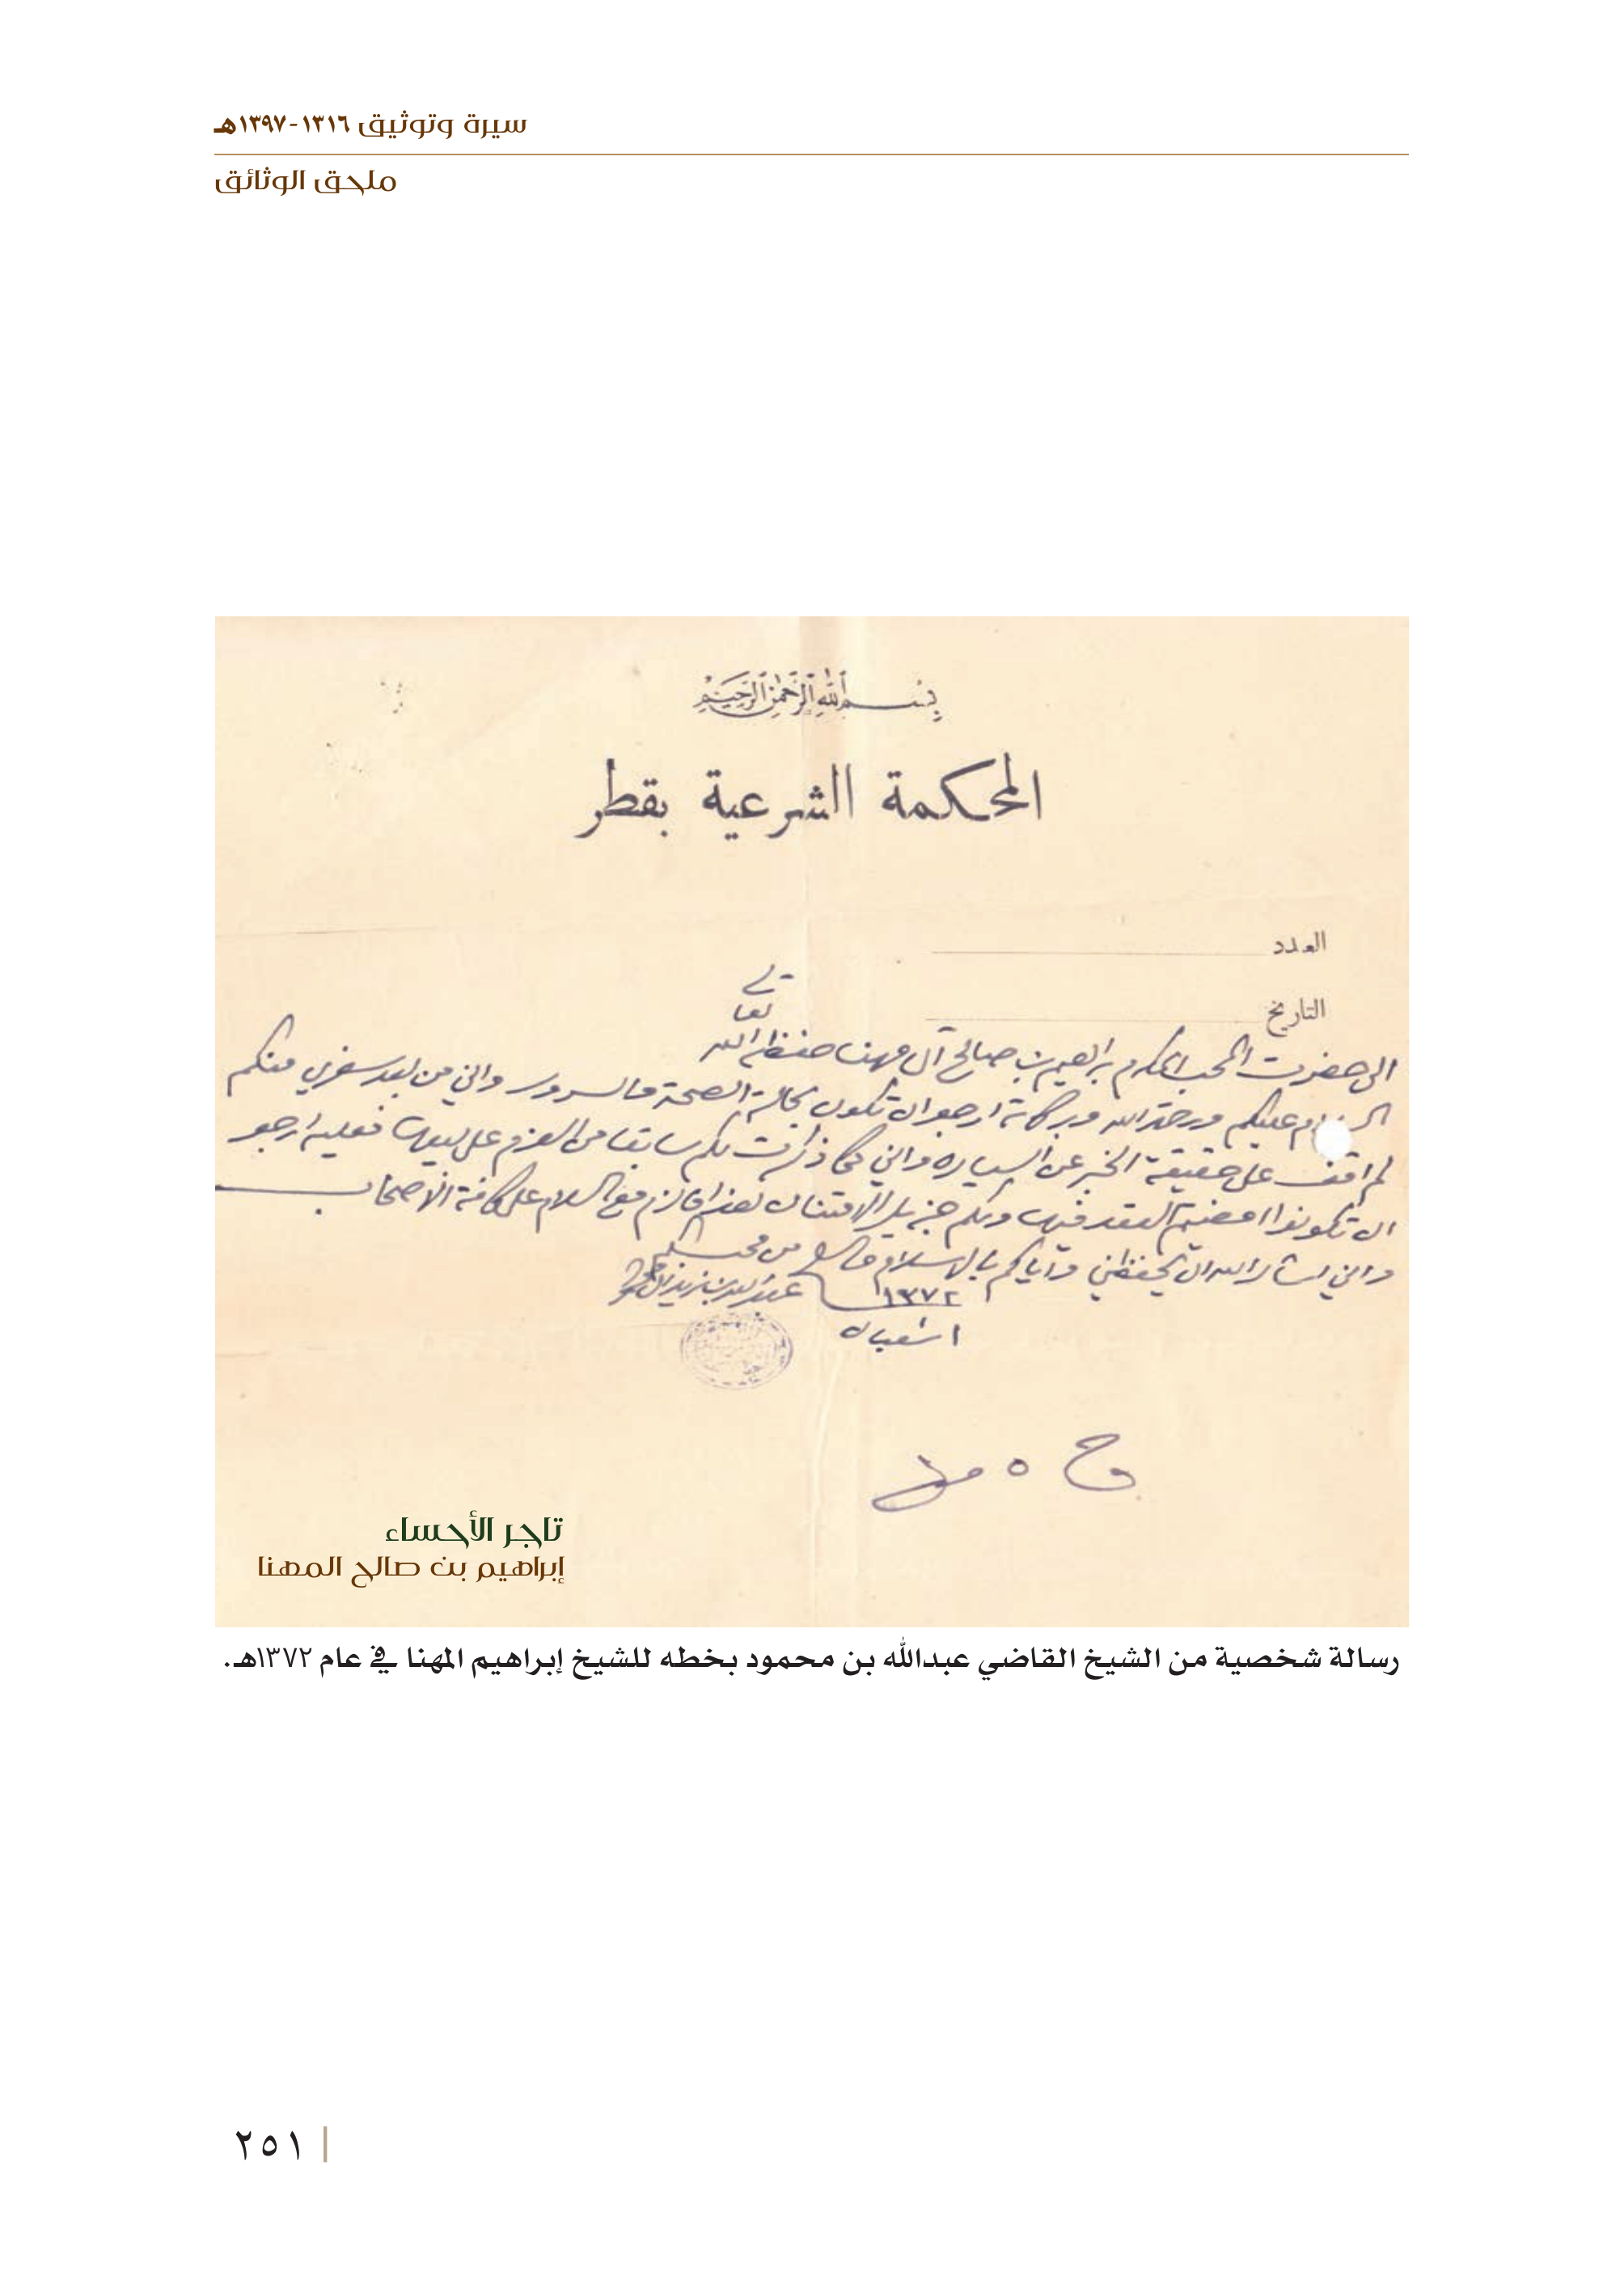 سيرة وتوثيق ١٣١٦-١٣٩٧هـ
ملحق الوثائق
بسم الله الرحمن الرحيم
المحكمة الشرعية بقطر
العدد
التاريخ
الى حضرت المحب المكرم ابراهيم بن صالح آل مهنا حفظه الله تعالى
عليكم ورحمة الله وبركاته ارجو ان تكون بحالة الصحة والسرور واني من بعد سفري منكم
لم اقف على حقيقة الخبر عن السياره واني كما ذكرت لكم سابقا من العزم على بيعها فعليه ارجو
ان تكونوا امضيتم العقد فيها ولكم جزيل الامتنان هذا مالزم مع السلام على كافة الأصحاب
واني اسأل الله ان يحفظني واياكم بالاسلام من محبكم
عبدالله بن زيد آل محمود
١٣٧٢
١ شعبان
تاجر الأحساء
إبراهيم بن صالح المهنا
رسالة شخصية من الشيخ القاضي عبدالله بن محمود بخطه للشيخ إبراهيم المهنا في عام ١٣٧٢هـ.
٢٥١